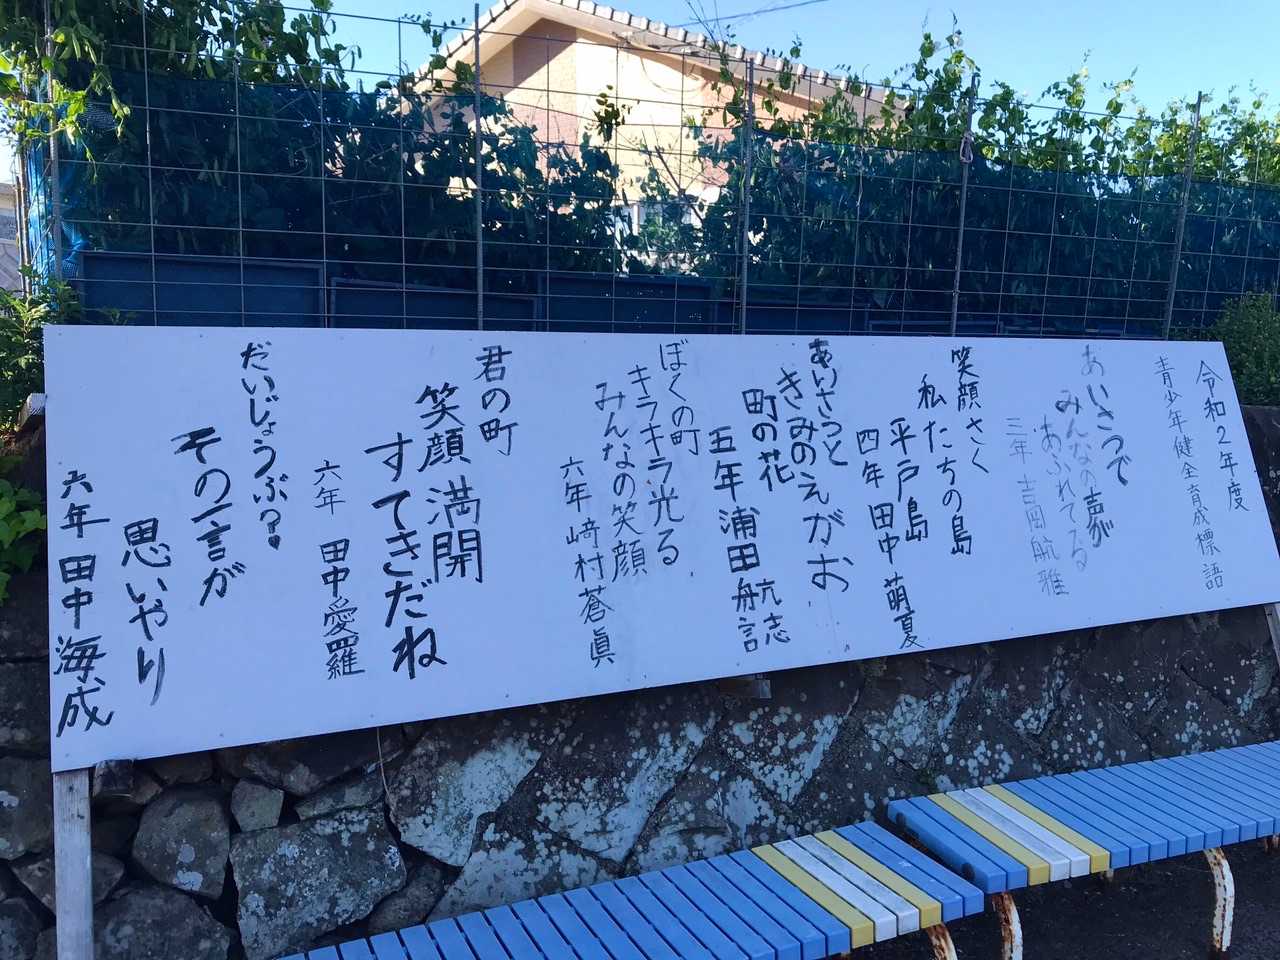 令和2年度
青少年健全育成標語
あいさつで
みんなの声が
あふれてる
三年 吉岡航雅
笑顔さく
私たちの島
平戸島
四年 田中萌夏
あいさつと
きみのえがお
町の花
五年 浦田航志
ぼくの町
キラキラ光る
みんなの笑顔
六年 﨑村蒼眞
君の町
笑顔満開
すてきだね
六年 田中愛羅
だいじょうぶ?
その一言が
思いやり
六年 田中海成